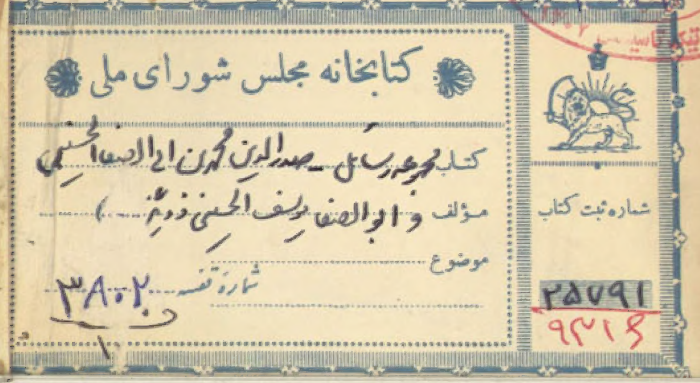 کتابخانه مجلس شورای ملی
کتاب مجموعه رسائل - صدرالدین محمد بن ابی الصفا الحسینی
مؤلف و ابوالصفا یوسف الحسینی
موضوع
شماره قفسه ۳۸۰۲۰
۱
شماره ثبت کتاب
۲۵۷۹۱
۹۳۱۶